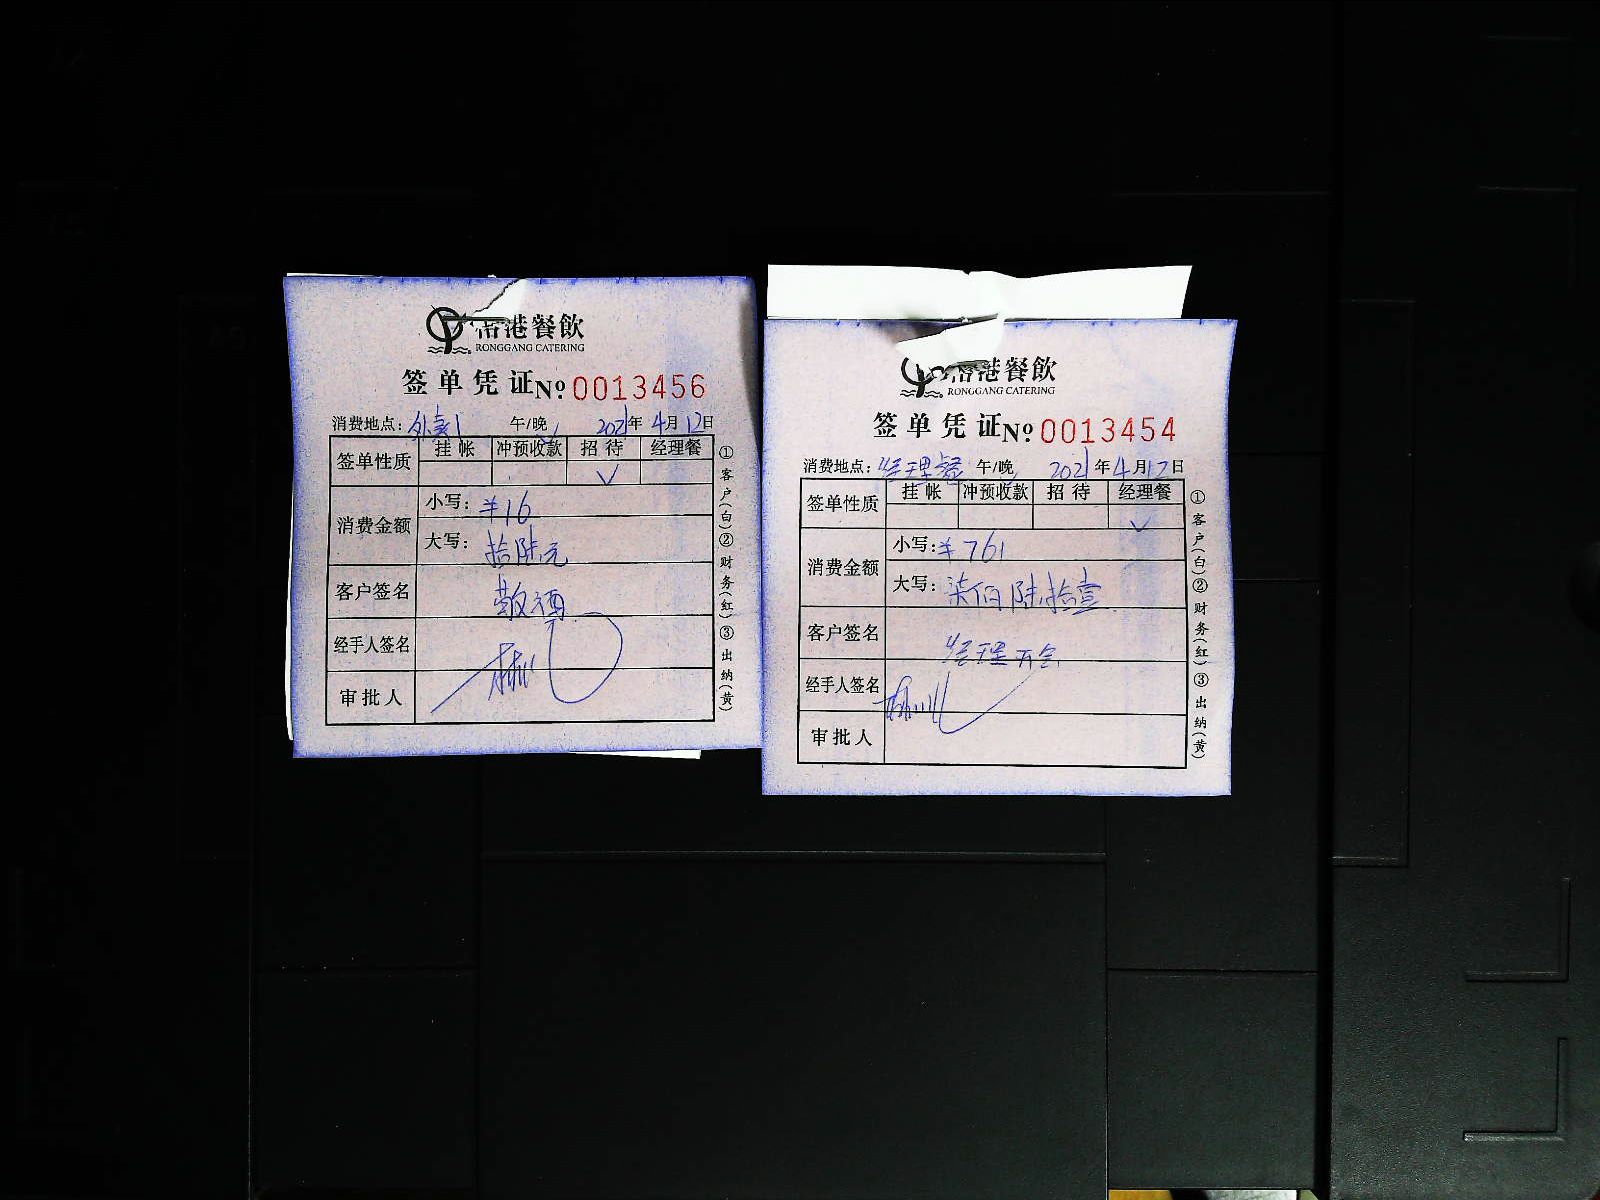 港餐飲
RONGGANG CATERING
签单凭证 № 0013456
消费地点： 午/晚 2021年4月12日
签单性质 挂帐 冲预收款 招待 经理餐
✓
消费金额 小写：¥16
大写：拾陆元
客户签名 敬酒
经手人签名
审批人
①客户(白)②财务(红)③出纳(黄)
港餐飲
RONGGANG CATERING
签单凭证 № 0013454
消费地点：经理餐 午/晚 2021年4月12日
签单性质 挂帐 冲预收款 招待 经理餐
✓
消费金额 小写：¥761
大写：柒佰陆拾壹
客户签名 经理
经手人签名
审批人
①客户(白)②财务(红)③出纳(黄)